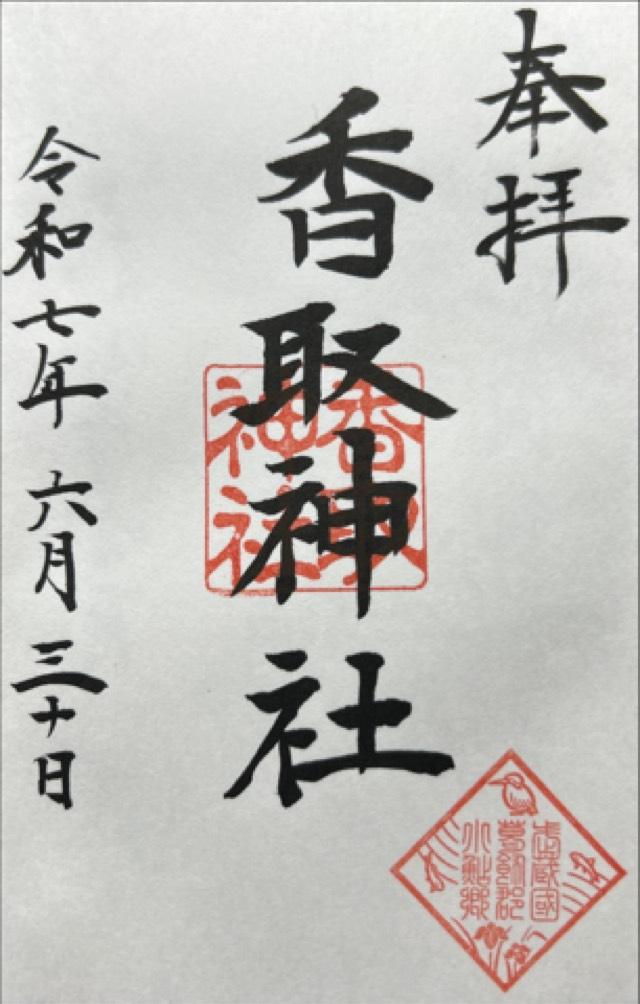 奉拝
香取神社
香取
神社
令和七年六月三十日
武蔵國
葛飾郡
小鮎郷